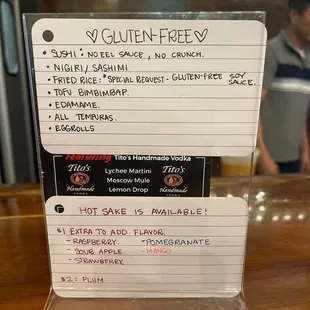 ♡GLUTEN-FREE♡
• SUSHI: NO EEL SAUCE, NO CRUNCH.
• NIGIRI/SASHIMI
• FRIED RICE: *SPECIAL REQUEST - GLUTEN-FREE SOY SAUCE.
• TOFU BIMBIMBAP.
• EDAMAME.
• ALL TEMPURAS.
• EGGROLLS
Featuring Tito's Handmade Vodka
Tito's Handmade VODKA
Lychee Martini
Moscow Mule
Lemon Drop
Tito's Handmade VODKA
HOT SAKE IS AVAILABLE!
$1 EXTRA TO ADD FLAVOR.
- RASPBERRY. - POMEGRANATE
- SOUR APPLE - MANGO
- STRAWBERRY
$2: PLUM